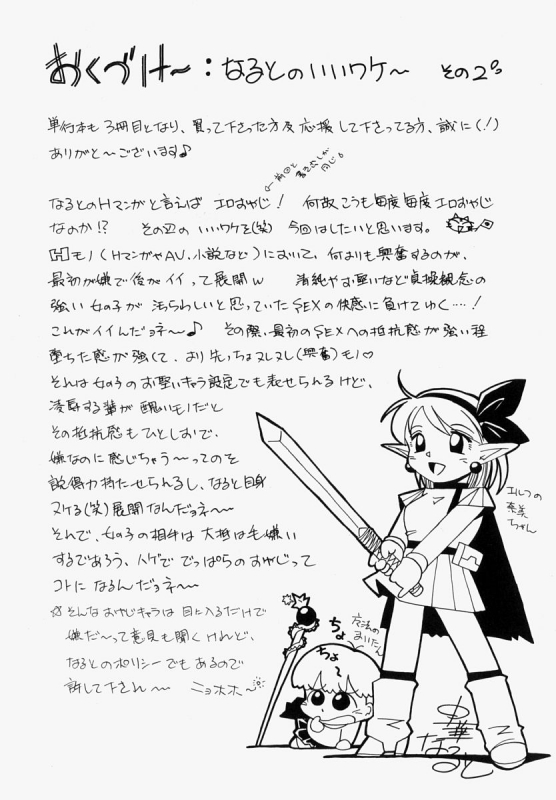 おくづけ〜：なるとのいいワケ〜 その2
単行本も3冊目となり、買って下さった方及応援して下さってる方、誠に(!)
ありがと〜ございます♪
なるとのHマンガと言えば エロおやじ！ 何故こうも毎度毎度エロおやじ
なのか!? その辺のいいワケを(笑) 今回はしたいと思います。
Hモノ(HマンガやAV、小説など)において、何よりも興奮するのが、
最初が嫌で後がイイって展開w 清純やお堅いなど貞操観念の
強い女の子が 汚らわしいと思っていたSEXの快感に負けてゆく…！
これがイイんだョネ〜♪ その際、最初のSEXへの抵抗感が強い程
堕ちた感が強くて、より先っちょヌレヌレ(興奮)モノ♡
それは女の子のお堅いキャラ設定でも表せられるけど、
凌辱する輩が醜いモノだと
その抵抗感もひとしおで、
嫌なのに感じちゃう〜ってのを
説得力持たせられるし、なると自身
ヌケる(笑)展開なんだョネ〜
そんで、女の子の相手は大抵は毛嫌い
するであろう、ハゲででっぱらのおやじって
コトになるんだョネ〜〜
☆そんなおやじキャラは目に入るだけで
嫌だ〜って意見も聞くけれど、
なるとのポリシーでもあるので
許して下さい〜〜 ニョホホ〜
エルフの
奈美
ちゃん
魔法の
まいたん
ちょ
ちょ〜
中華
なると